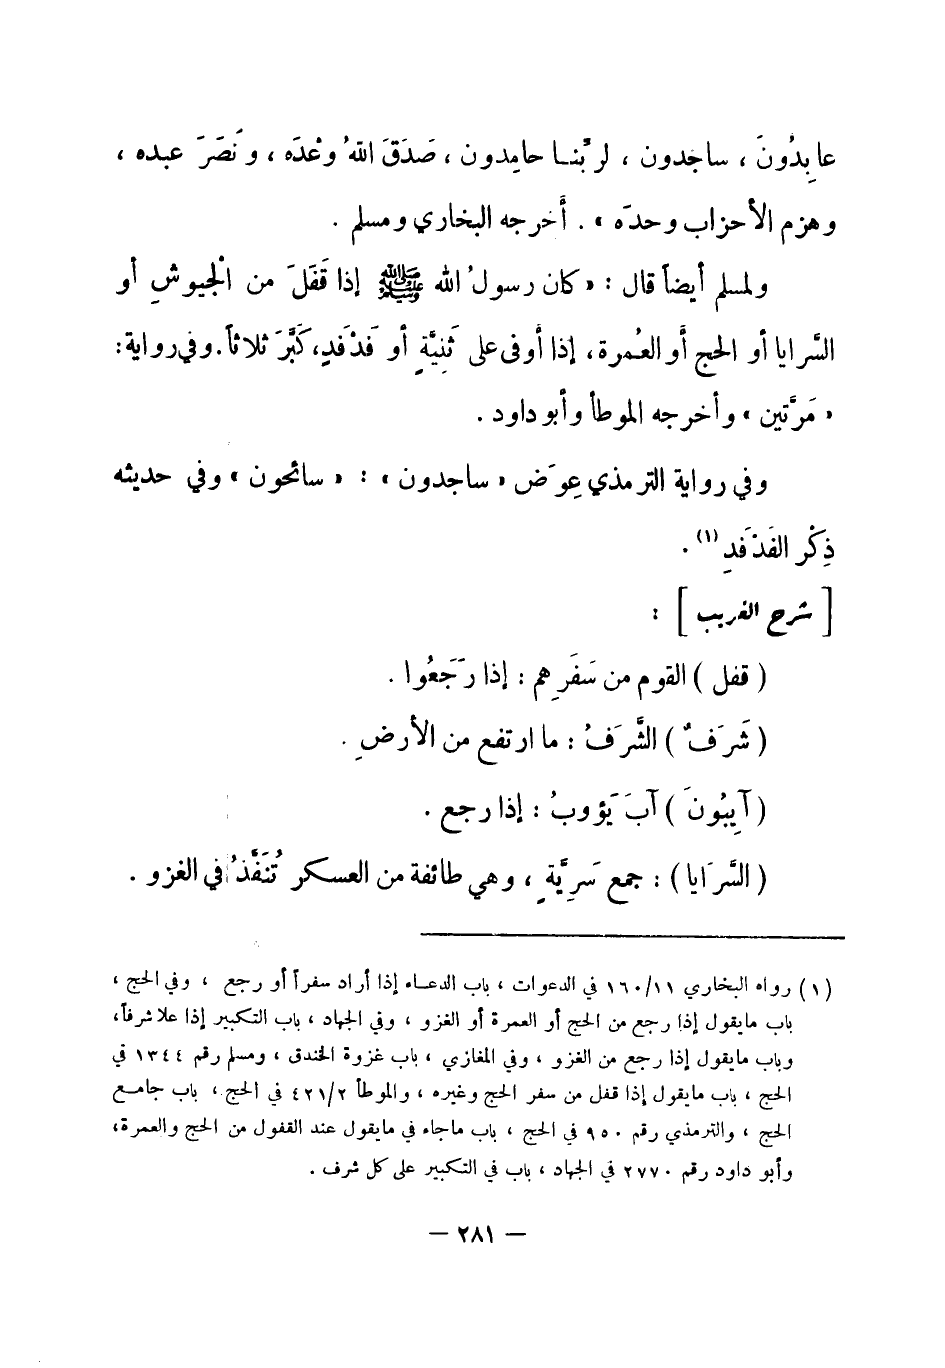 عابِدُونَ ، ساجدون ، لربِّنا حامِدون ، صَدَقَ اللهُ وعْدَه ، ونَصَرَ عبده ،
وهزم الأحزاب وحدَه » . أَخرجه البخاري ومسلم .
ولمسلم أيضاً قال : « كان رسولُ الله ﷺ إذا قَفَلَ من الْجيوشِ أو
السَّرايا أو الحج أَو العُمرة ، إذا أَوفى على ثَنِيَّةٍ أو فَدْفَدٍ، كَبَّرَ ثلاثاً . وفي رواية :
« مَرَّتين » وأخرجه الموطأ وأبو داود .
وفي رواية الترمذي عِوَض « ساجدون » : « سائحون » وفي حديثه
ذِكْر الفَدْفَدِ (١) .
[ شرح الغريب ] :
( قفل ) القوم من سَفَرِهم : إذا رَجَعُوا .
( شَرَفٌ ) الشَّرَفُ : ما ارتفع من الأرضِ .
( آيِبُونَ ) آبَ يَؤوبُ : إذا رجع .
( السَّرَايا ) : جمع سَرِيَّةٍ ، وهي طائفة من العسكر تُنَفَّذُ في الغزو .
(١) رواه البخاري ١٦٠/١١ في الدعوات ، باب الدعاء إذا أراد سفراً أو رجع ، وفي الحج ،
باب مايقول إذا رجع من الحج أو العمرة أو الغزو ، وفي الجهاد ، باب التكبير إذا علا شرفاً،
وباب مايقول إذا رجع من الغزو ، وفي المغازي ، باب غزوة الخندق ، ومسلم رقم ١٣٤٤ في
الحج ، باب مايقول إذا قفل من سفر الحج وغيره ، والموطأ ٤٢١/٢ في الحج ، باب جامع
الحج ، والترمذي رقم ٩٥٠ في الحج ، باب ماجاء في مايقول عند القفول من الحج والعمرة،
وأبو داود رقم ٢٧٧٠ في الجهاد ، باب في التكبير على كل شرف .
— ٢٨١ —